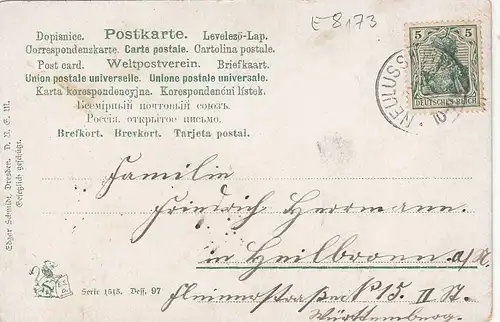 E 8173
Dopisnice. Postkarte. Levelező-Lap.
Correspondenzkarte. Carte postale. Cartolina postale.
Post card. Weltpostverein. Briefkaart.
Union postale universelle. Unione postale universale.
Karta korespondencyjna. Korespondenčni lístek.
Всемірный почтовый союзъ.
Россія. открытое письмо.
Brefkort. Brevkort. Tarjeta postal.
5 5
DEUTSCHES REICH
NEULUSS
Edgar Schmidt, Dresden. D. R. G. M.
Gesetzlich geschützt.
Familie
Friedrich Herrmann.
in Heilbronn a/N.
Serie 1515. Deff. 97
No 15. II St.
Württemberg.